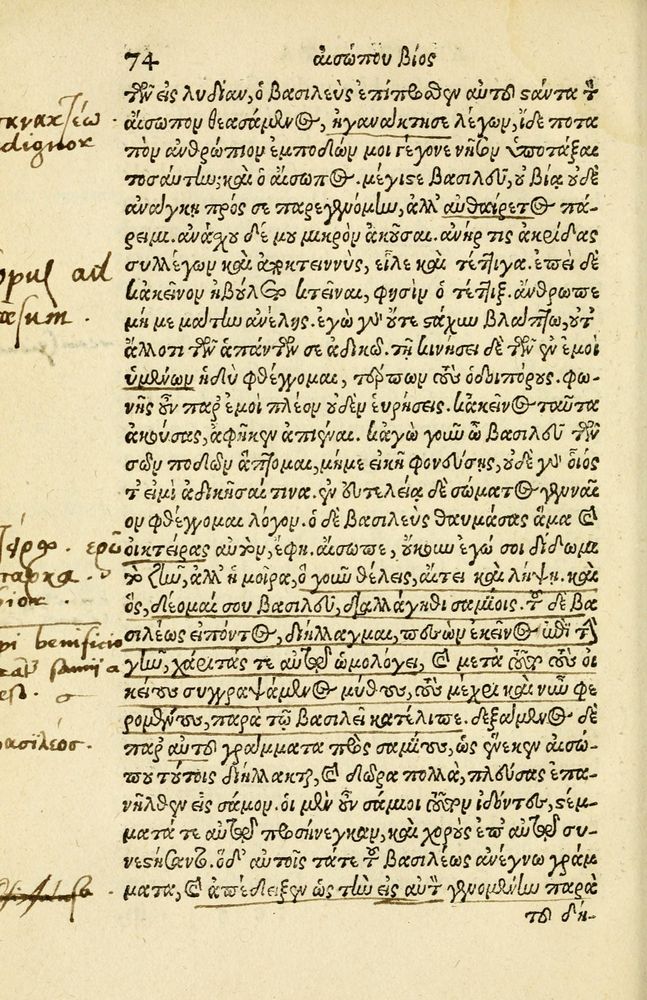 74 αἰσώπου βίος
τῶν εἰς λυδίαν, ὁ βασιλεὺς ἐπίπροσθεν αὐτοῦ στάντα τὸν
αἴσωπον θεασάμενος, ἠγανάκτησε λέγων, ἴδε ποτα
πὸν ἀνθρώπιον ἐμποδὼν μοι γέγονε νῆσον ὑποτάξαι
τοσαύτην; καὶ ὁ αἴσωπος. μέγιστε βασιλεῦ, οὐ βίᾳ οὐδὲ
ἀνάγκῃ πρός σε παρεγενόμην, ἀλλ' αὐθαίρετος πά-
ρειμι. ἀνάσχου δέ μου μικρὸν ἀκοῦσαι. ἀνήρ τις ἀκρίδας
συλλέγων καὶ ἀποκτεννὺς, εἷλε καὶ τέττιγα. ἐπεὶ δὲ
κἀκεῖνον ἠβούλετο κτεῖναι, φησὶν ὁ τέττιξ. ἄνθρωπε
μή με μάτην ἀνέλῃς. ἐγὼ γὰρ οὔτε στάχυν βλάπτω, οὔτ'
ἄλλό τι τῶν ἁπάντων σε ἀδικῶ. τῇ κινήσει δὲ τῶν ἐν ἐμοὶ
ὑμένων ἡδὺ φθέγγομαι, τέρπων τοὺς ὁδοιπόρους. φω-
νῆς οὖν παρ' ἐμοὶ πλέον οὐδὲν εὑρήσεις. κἀκεῖνος ταῦτα
ἀκούσας, ἀφῆκεν ἀπιέναι. κἀγὼ γοῦν ὦ βασιλεῦ τῶν
σῶν ποδῶν ἅπτομαι, μή με εἰκῆ φονεύσῃς, οὐδὲ γὰρ οἷός
τ' εἰμὶ ἀδικῆσαί τινα. ἐν εὐτελείᾳ δὲ σώματος γενναῖ
ον φθέγγομαι λόγον. ὁ δὲ βασιλεὺς θαυμάσας ἅμα καὶ
οἰκτείρας αὐτὸν, ἔφη. αἴσωπε, οὐκ ἐγώ σοι δίδωμι
τὸ ζῆν, ἀλλ' ἡ μοῖρα, ὃ γοῦν θέλεις, αἴτει καὶ λήψῃ. καὶ
ὃς, δέομαί σου βασιλεῦ, διαλλάγηθι σαμίοις. τοῦ δὲ βα
σιλέως εἰπόντος, διήλλαγμαι, πεσὼν ἐκεῖνος ἐπὶ τὴν
γῆν, χάριτάς τε αὐτῷ ὡμολόγει, καὶ μετὰ τοῦτο τοὺς οἰ
κείους συγγραψάμενος μύθους, τοὺς μέχρι καὶ νῦν φε
ρομένους, παρὰ τῷ βασιλεῖ κατέλιπε. δεξάμενος δὲ
παρ' αὐτοῦ γράμματα πρὸς σαμίους, ὡς ἕνεκεν αἰσώ-
που τούτοις διήλλακται, καὶ δῶρα πολλὰ, πλεύσας ἐπα-
νῆλθεν εἰς σάμον. οἱ μὲν οὖν σάμιοι τοῦτον ἰδόντες, στέμ-
ματά τε αὐτῷ προσήνεγκαν, καὶ χοροὺς ἐπ' αὐτῷ συ-
νεστήσαντο. ὁ δ' αὐτοῖς τά τε τοῦ βασιλέως ἀνέγνω γράμ
ματα, καὶ ἀπέδειξεν ὡς τὴν εἰς αὐτὸν γενομένην παρὰ
τοῦ δή-
dignor
opus ad
esum.
pi benificio
βασιλέος.